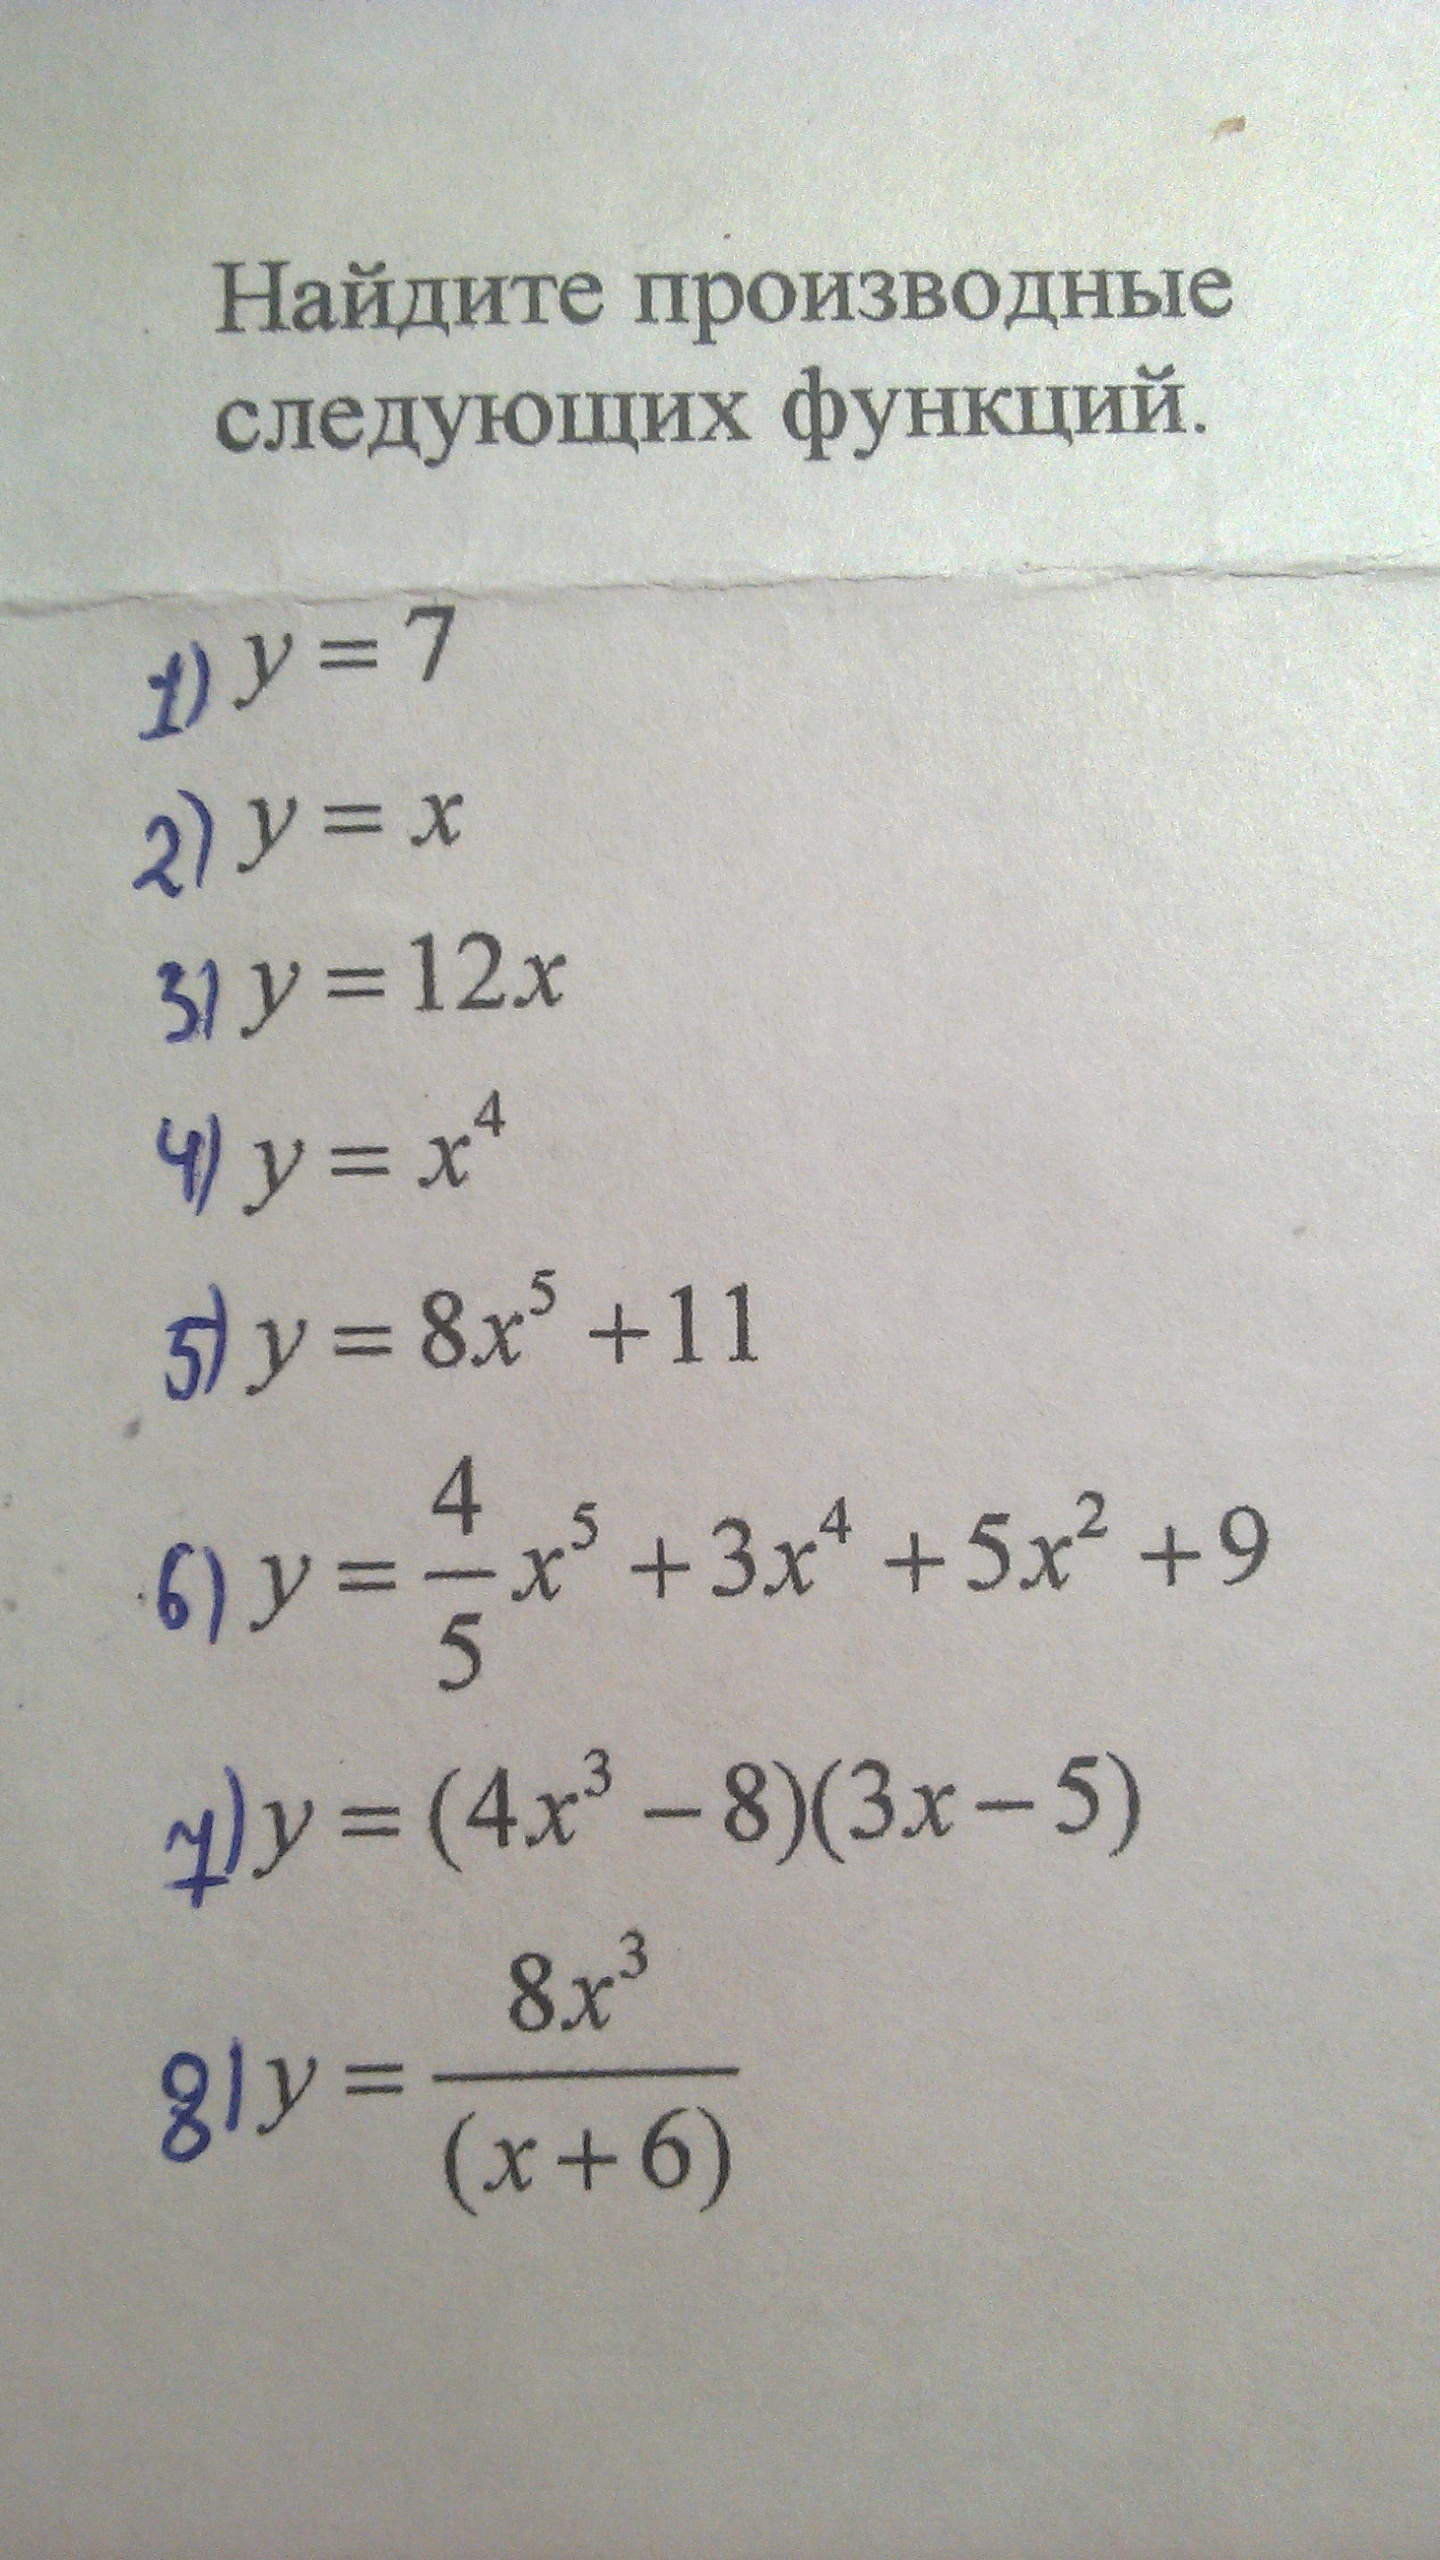 Найдите производные
следующих функций.
1) y = 7
2) y = x
3) y = 12x
4) y = x⁴
5) y = 8x⁵ + 11
6) y = 4/5 x⁵ + 3x⁴ + 5x² + 9
7) y = (4x³ − 8)(3x − 5)
8) y = 8x³/(x + 6)